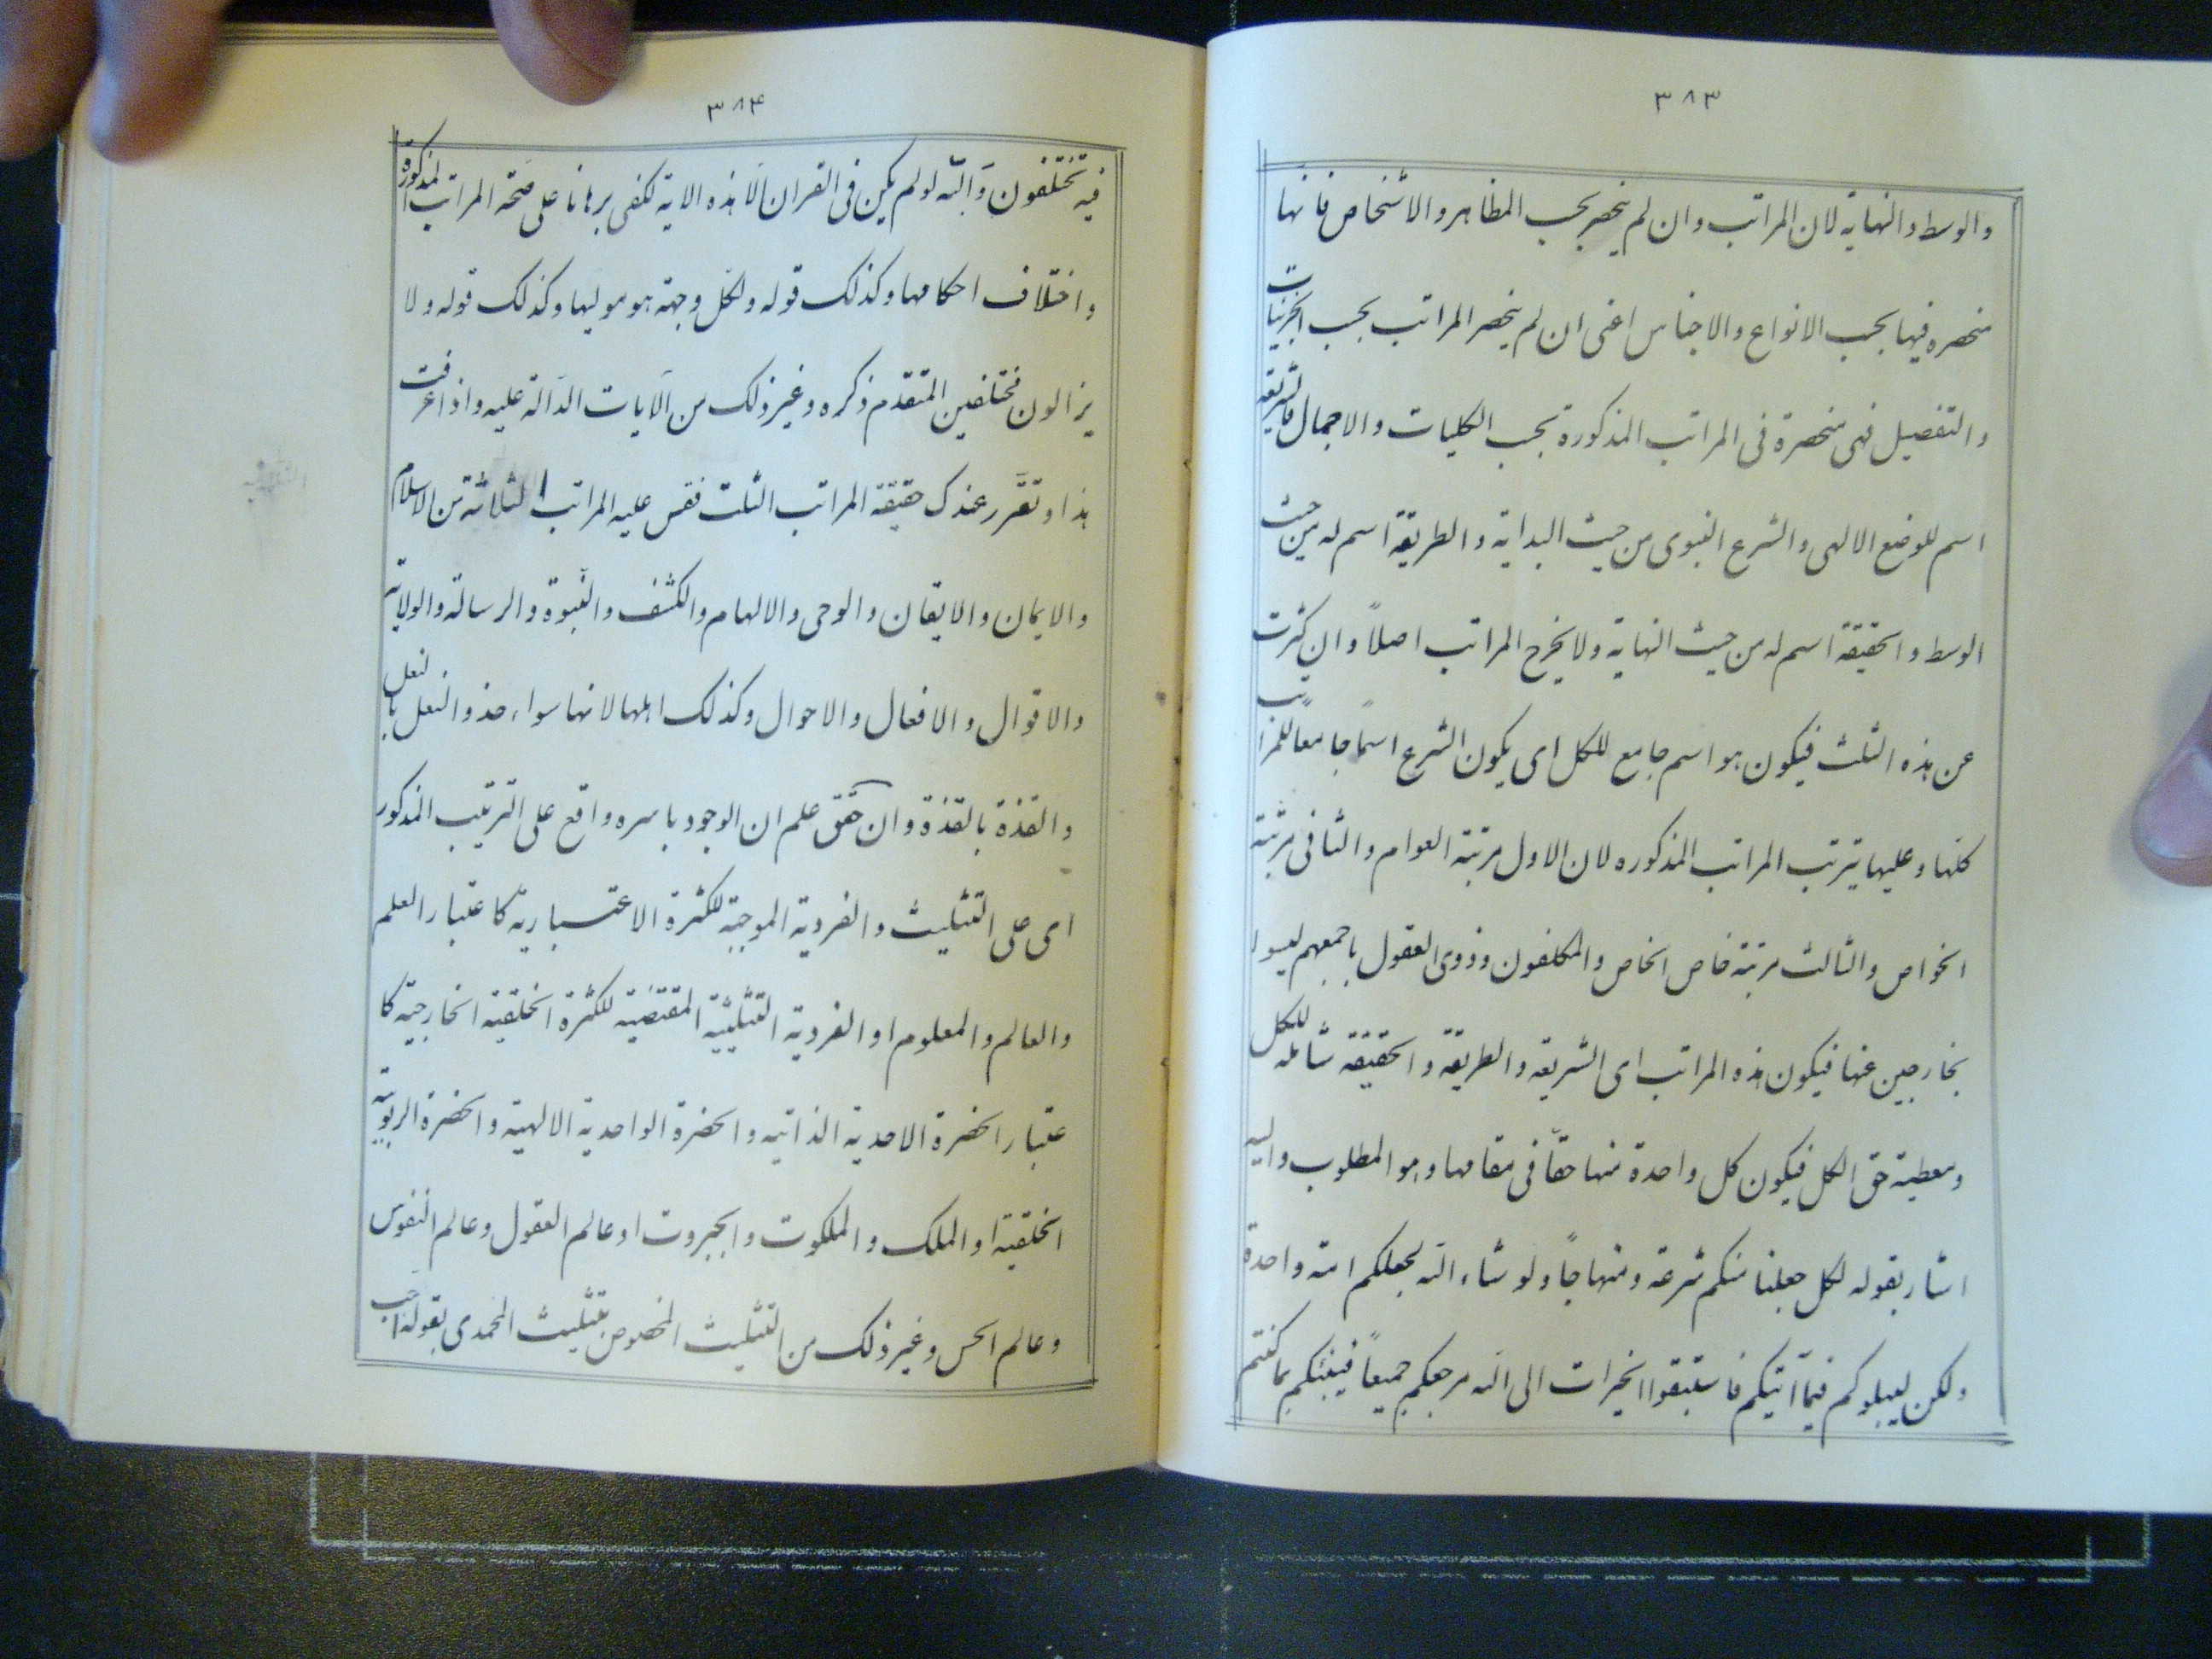 ٣٨٣
والوسط والنهاية لان المراتب وان لم ينحصر بحسب المظاهر والاشخاص فانها
منحصره فيها بحسب الانواع والاجناس اعنى ان لم ينحصر المراتب بحسب الجزئيات
والتفصيل فهى منحصرة فى المراتب المذكورة بحسب الكليات والاجمال فالشريعة
اسم للوضع الالهى والشرع النبوى من حيث البداية والطريقة اسم له من حيث
الوسط والحقيقة اسم له من حيث النهاية ولا يخرج المراتب اصلاً وان كثرت
عن هذه الثلث فيكون هو اسم جامع للكل اى يكون الشرع اسماً جامعاً للمراتب
كلها وعليها يترتب المراتب المذكوره لان الاول مرتبة العوام والثانى مرتبة
الخواص والثالث مرتبة خاص الخاص والمكلفون وذوى العقول باجمعهم ليسوا
بخارجين عنها فيكون هذه المراتب اى الشريعة والطريقة والحقيقة شاملة للكل
ومعطية حق الكل فيكون كل واحدة منها حقاً فى مقامها وهو المطلوب واليه
اشار بقوله لكل جعلنا منكم شرعة ومنهاجاً ولو شاء الله لجعلكم امة واحدة
ولكن ليبلوكم فيما آتيكم فاستبقوا الخيرات الى الله مرجعكم جميعاً فينبئكم بما كنتم
٣٨۴
فيه تختلفون والله لو لم يكن فى القران الا هذه الاية لكفى برهانا على صحة المراتب المذكورة
واختلاف احكامها وكذلك قوله ولكل وجهة هو موليها وكذلك قوله ولا
يزالون مختلفين المتقدم ذكره وغير ذلك من الايات الدالة عليه واذا عرفت
هذا وتقرر عندك حقيقة المراتب الثلث فقس عليه المراتب الثلاثة من الاسلام
والايمان والايقان والوحى والالهام والكشف والنبوة والرسالة والولاية
والاقوال والافعال والاحوال وكذلك اهلها لانها سواء حذو النعل بالنعل
والقذة بالقذة وان حقق علم ان الوجود باسره واقع على الترتيب المذكور
اى على التثليث والفردية الموجبة للكثرة الاعتبارية كاعتبار العلم
والعالم والمعلوم او الفردية التثليثية المقتضية للكثرة الخلقية الخارجية كا
عتبار الحضرة الاحدية الذاتية والحضرة الواحدية الالهية والحضرة الربوبية
الخلقية او الملك والملكوت والجبروت او عالم العقول وعالم النفوس
وعالم الحس وغير ذلك من التثليث المخصوص بتثليث المحمدى بقوله احب